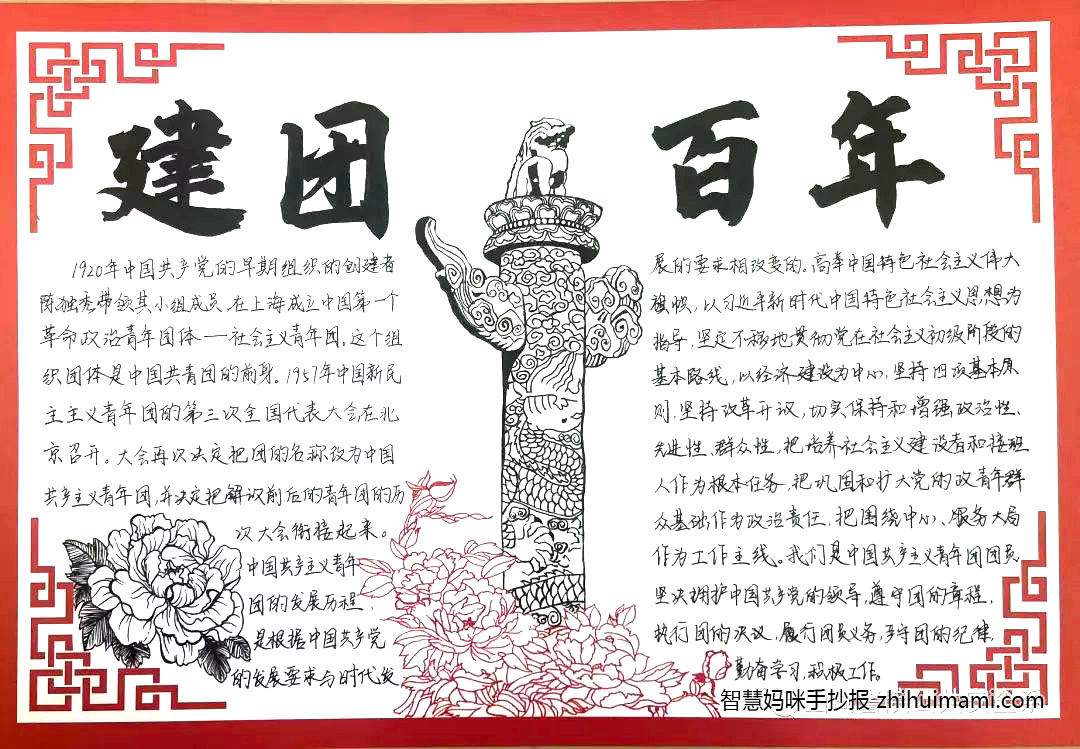 建团百年
1920年中国共产党的早期组织的创建者
陈独秀带领其小组成员,在上海成立中国第一个
革命政治青年团体——社会主义青年团,这个组
织团体是中国共青团的前身。1957年中国新民
主主义青年团的第三次全国代表大会在北
京召开。大会再次决定把团的名称改为中国
共产主义青年团,并决定把解设前后的青年团的历
次大会衔接起来。
中国共产主义青年
团的发展历程,
是根据中国共产党
的发展要求与时代发
展的要求相改变的。高举中国特色社会主义伟大
旗帜,以习近平新时代中国特色社会主义思想为
指导,坚定不移地贯彻党在社会主义初级阶段的
基本路线,以经济建设为中心,坚持四项基本原
则,坚持改革开议,切实保持和增强政治性、
先进性、群众性,把培养社会主义建设者和接班
人作为根本任务,把巩固和扩大党的政青年群
众基础作为政治责任,把围绕中心、服务大局
作为工作主线。我们是中国共产主义青年团团员
坚决拥护中国共产党的领导,遵守团的章程,
执行团的决议,履行团员义务,严守团的纪律,
勤奋学习,积极工作。
智慧妈咪手抄报 zhihuimami.com